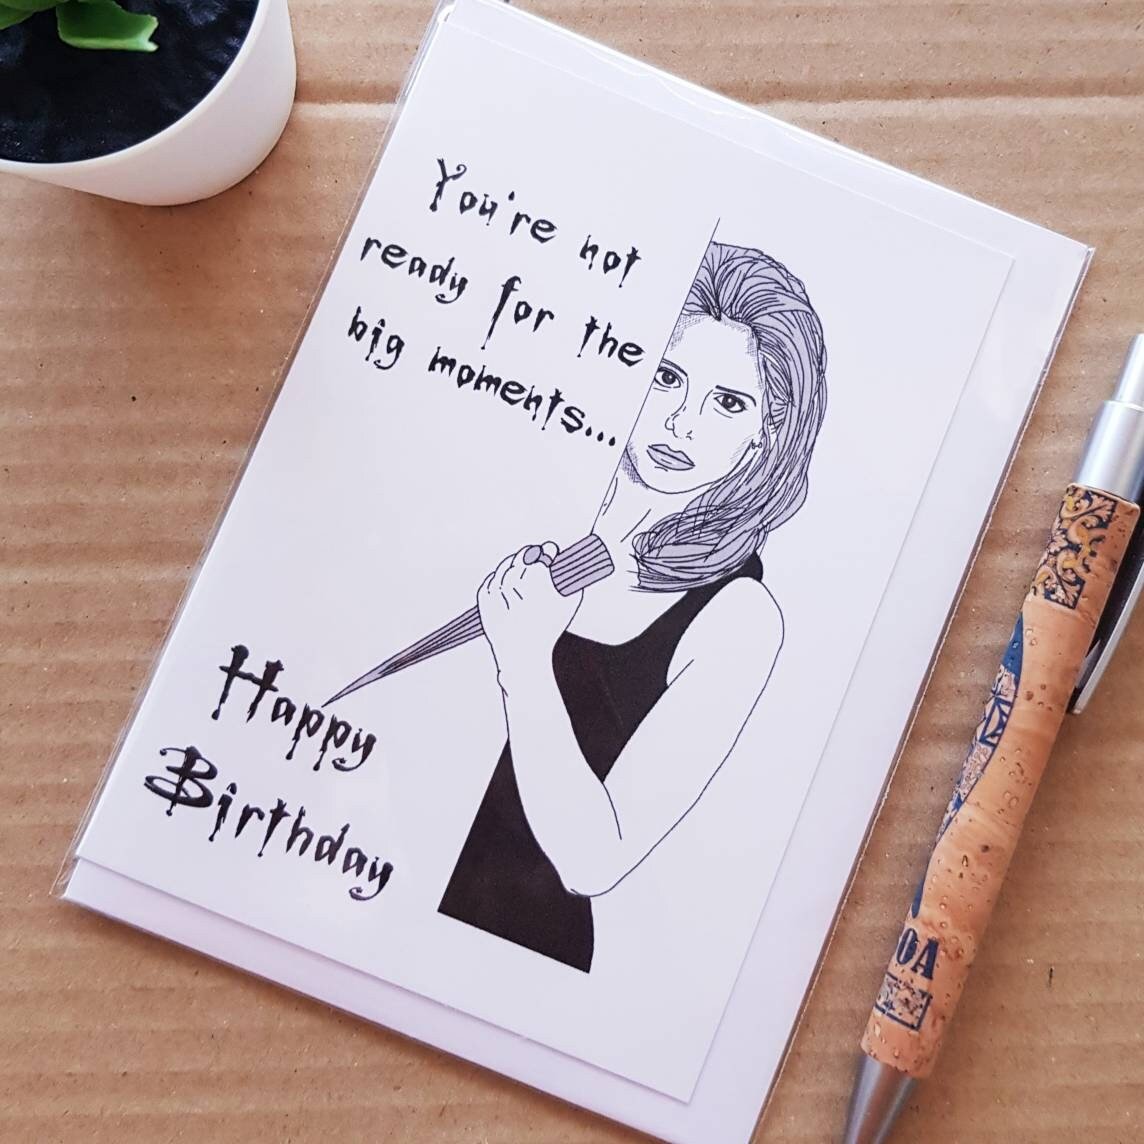 You're not
ready for the
big moments...
Happy
Birthday
OA